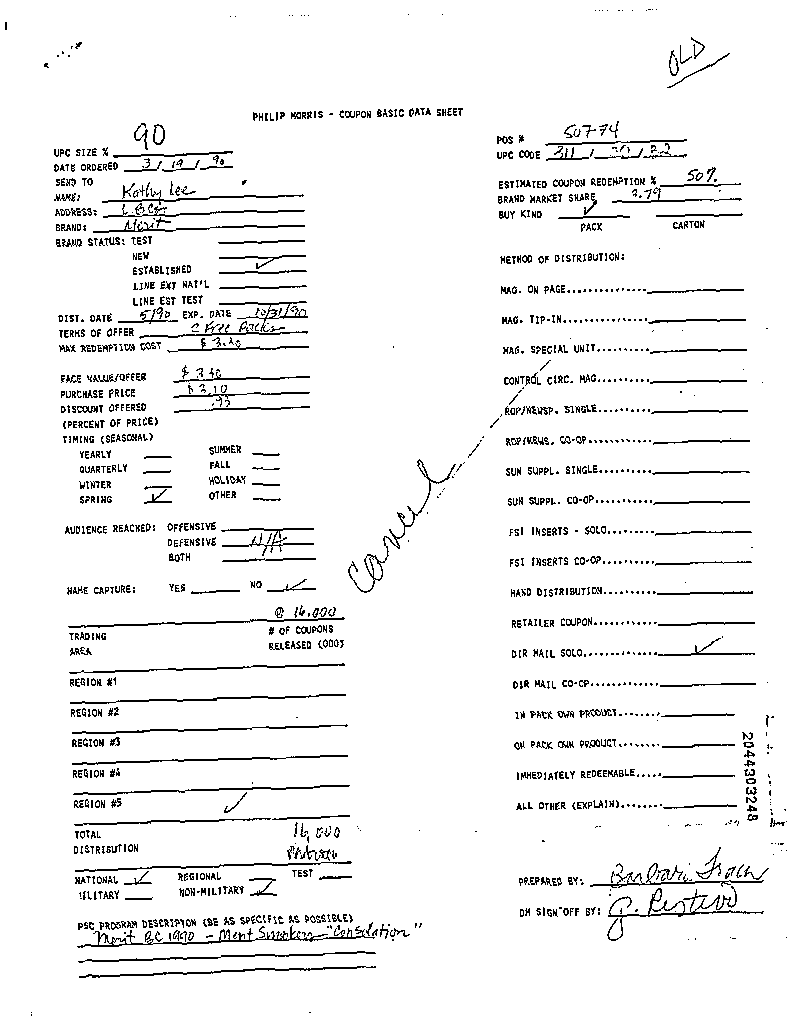 OLD
PHILIP MORRIS - COUPON BASIC DATA SHEET
UPC SIZE % 90
DATE ORDERED 3/19/90
SEND TO
NAME: Kathy Lee
ADDRESS:
BRAND: Merit
BRAND STATUS: TEST
NEW
ESTABLISHED ✓
LINE EXT NAT'L
LINE EST TEST
DIST. DATE 5/90 EXP. DATE 10/31/90
TERMS OF OFFER 2 Free Packs
MAX REDEMPTION COST
FACE VALUE/OFFER
PURCHASE PRICE $3.10
DISCOUNT OFFERED .93
(PERCENT OF PRICE)
TIMING (SEASONAL)
YEARLY SUMMER
QUARTERLY FALL
WINTER HOLIDAY
SPRING ✓ OTHER
AUDIENCE REACHED: OFFENSIVE
DEFENSIVE N/A
BOTH
NAME CAPTURE: YES NO ✓
@ 16,000
TRADING # OF COUPONS
AREA RELEASED (000)
REGION #1
REGION #2
REGION #3
REGION #4
REGION #5 ✓
TOTAL 16,000
DISTRIBUTION
NATIONAL ✓ REGIONAL TEST
MILITARY NON-MILITARY ✓
PSC PROGRAM DESCRIPTION (BE AS SPECIFIC AS POSSIBLE)
Merit BC 1990 - Merit Smokers - "Consolation"
Cancel
POS # 50774
UPC CODE
ESTIMATED COUPON REDEMPTION % 50%
BRAND MARKET SHARE 3.79
BUY KIND ✓
PACK CARTON
METHOD OF DISTRIBUTION:
MAG. ON PAGE
MAG. TIP-IN
MAG. SPECIAL UNIT
CONTROL CIRC. MAG.
ROP/NEWSP. SINGLE
ROP/NEWS. CO-OP
SUN SUPPL. SINGLE
SUN SUPPL. CO-OP
FSI INSERTS - SOLO
FSI INSERTS CO-OP
HAND DISTRIBUTION
RETAILER COUPON
DIR MAIL SOLO ✓
DIR MAIL CO-OP
IN PACK OWN PRODUCT
ON PACK OWN PRODUCT
IMMEDIATELY REDEEMABLE
ALL OTHER (EXPLAIN)
2044303248
PREPARED BY: Barbara
DM SIGN OFF BY: